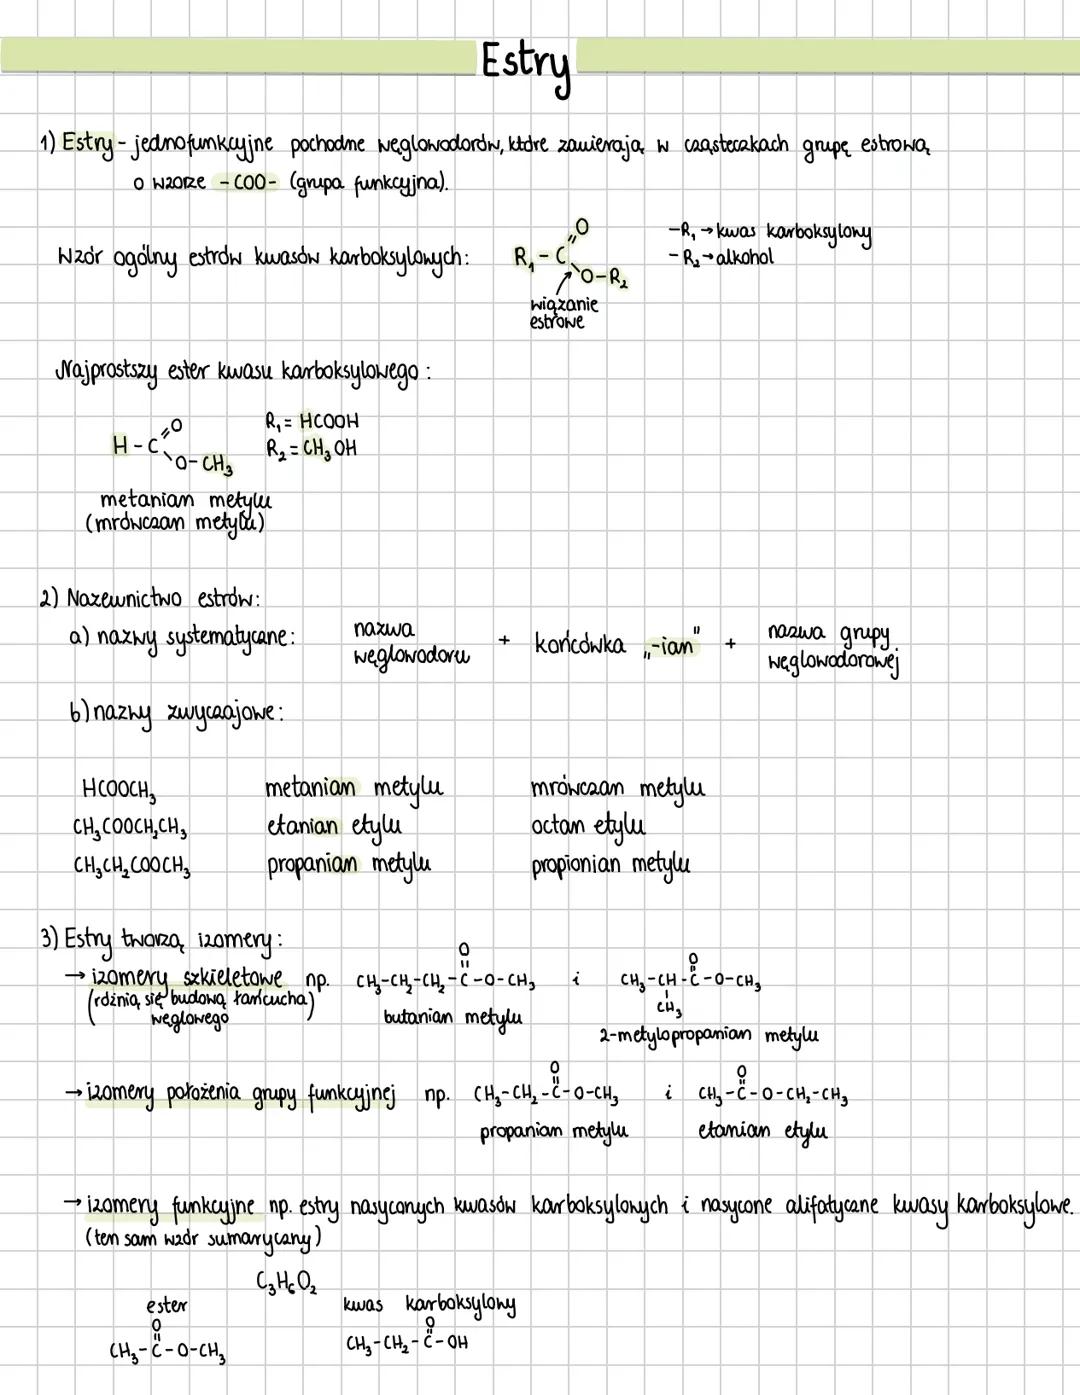 Estry
1) Estry - jednofunkcyjne pochodne węglowodorów, które zawierają w cząsteczkach grupę estrową
o wzorze -COO- (grupa funkcyjna).
Wzór ogólny estrów kwasów karboksylowych:
O
R₁-C
O-R₂
wiązanie
estrowe
-R₁ → kwas karboksylowy
-R₂ → alkohol
Najprostszy ester kwasu karboksylowego:
O
H-C
O-CH₃
R₁ = HCOOH
R₂ = CH₃OH
metanian metylu
(mrówczan metylu)
2) Nazewnictwo estrów:
a) nazwy systematyczne: nazwa węglowodoru + końcówka „-ian" + nazwa grupy węglowodorowej
b) nazwy zwyczajowe:
HCOOCH₃ metanian metylu mrówczan metylu
CH₃COOCH₂CH₃ etanian etylu octan etylu
CH₃CH₂COOCH₃ propanian metylu propionian metylu
3) Estry tworzą izomery:
O O
→ izomery szkieletowe np. CH₃-CH₂-CH₂-C-O-CH₃ i CH₃-CH-C-O-CH₃
(różnią się budową łańcucha węglowego)
CH₃
butanian metylu 2-metylopropanian metylu
O O
→ izomery położenia grupy funkcyjnej np. CH₃-CH₂-C-O-CH₃ i CH₃-C-O-CH₂-CH₃
propanian metylu etanian etylu
→ izomery funkcyjne np. estry nasyconych kwasów karboksylowych i nasycone alifatyczne kwasy karboksylowe.
(ten sam wzór sumaryczny)
C₃H₆O₂
ester kwas karboksylowy
O O
CH₃-C-O-CH₃ CH₃-CH₂-C-OH